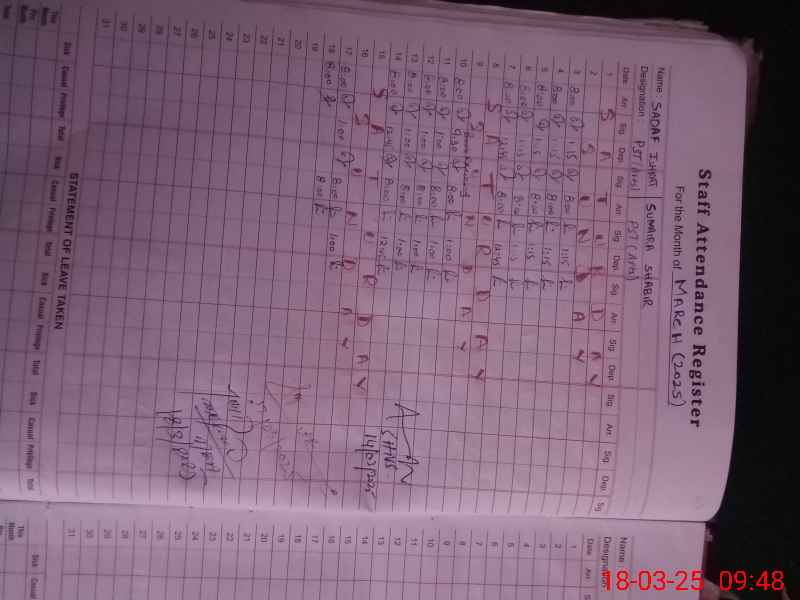 Staff Attendance Register
For the Month of MARCH (2025)
Name: SADAF ISHRAT SUMAIRA SHABIR
Designation: PST (AIOU) PST (AIOU)
Date Arr. Sig. Dep. Sig. Arr. Sig. Dep. Sig. Arr. Sig. Dep. Sig. Arr. Sig. Dep. Sig.
1 S A T U R D A Y
2 S U N D A Y
3 8:00 1:15 8:00 1:15
4 8:00 1:15 8:00 1:15
5 8:00 1:15 8:00 1:15
6 8:00 1:15 8:00
7 8:00 12:45 8:00 12:45
8 S A T U R D A Y
9 S U N D A Y
10 8:00 9:30 8:00 1:00
11 8:00 1:00 8:00 1:00
12 8:00 1:00 8:00 1:00
13 8:00 1:00 8:00 1:00
14 8:00 12:45 8:00 12:45
15 S A T U R D A Y
16 S U N D A Y
17 8:00 1:00 8:00 1:00
18 8:00 8:00
19
20
21
22
23
24
25
26
27
28
29
30
31
14/03/2025
18/3/2025
STATEMENT OF LEAVE TAKEN
Sick Casual Privilege Total Sick Casual Privilege Total Sick Casual Privilege Total Sick Casual Privilege Total
This Month
Pre. Month
Total
Name
Designation
Date Arr.
1
2
3
4
5
6
7
8
9
10
11
12
13
14
15
16
17
18
19
20
21
22
23
24
25
26
27
28
29
30
31
Sick Casual
This Month
18-03-25 09:48